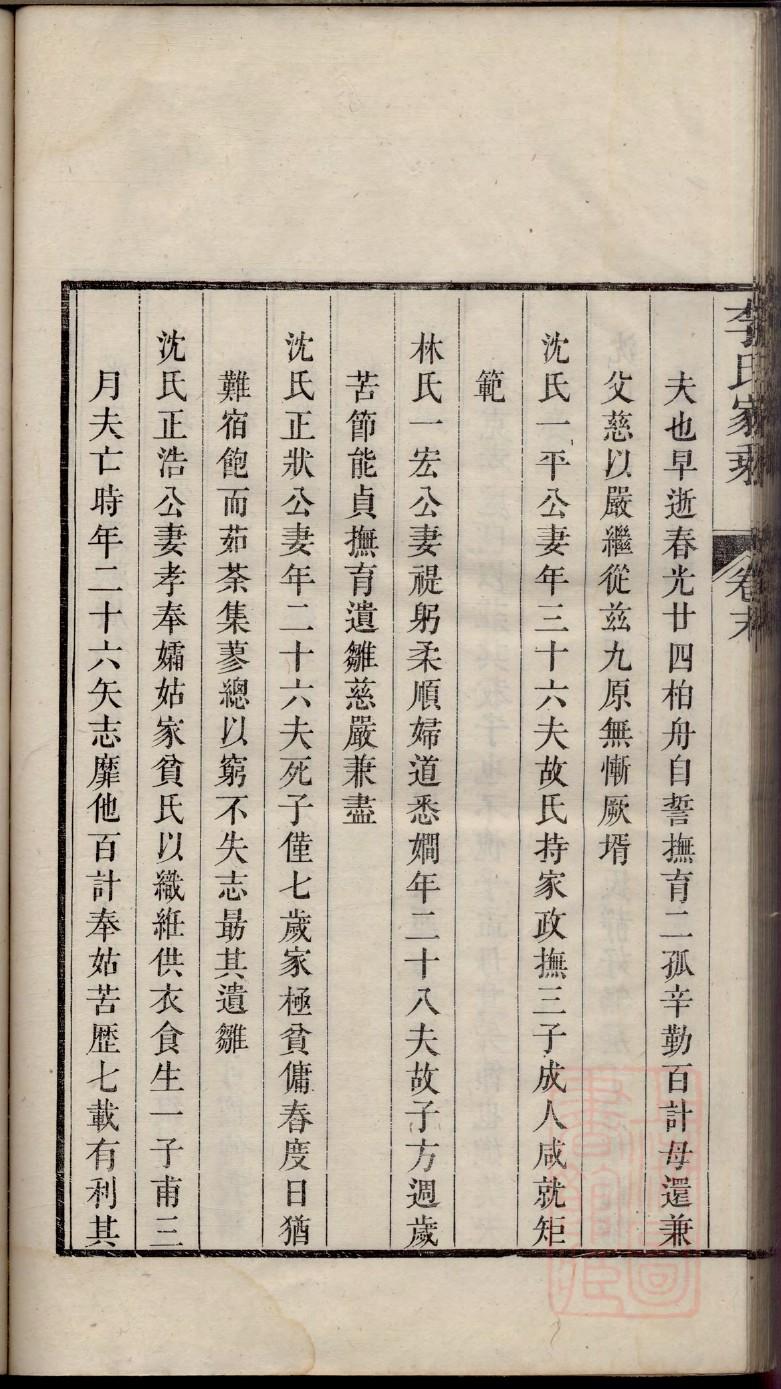 李氏家乘
卷末
夫也早逝春光廿四柏舟自誓撫育二孤辛勤百計母還兼
父慈以嚴繼從茲九原無慚厥壻
沈氏一平公妻年三十六夫故氏持家政撫三子成人咸就矩
範
林氏一宏公妻禔躬柔順婦道悉嫺年二十八夫故子方週歲
苦節能貞撫育遺雛慈嚴兼盡
沈氏正狀公妻年二十六夫死子僅七歲家極貧傭舂度日猶
難宿飽而茹荼集蓼總以窮不失志勗其遺雛
沈氏正浩公妻孝奉孀姑家貧氏以織紝供衣食生一子甫三
月夫亡時年二十六矢志靡他百計奉姑苦歷七載有利其